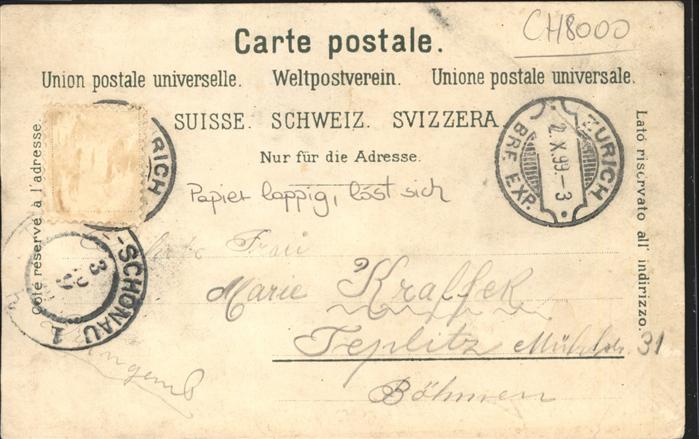 CH8000
Carte postale.
Union postale universelle. Weltpostverein. Unione postale universale.
SUISSE. SCHWEIZ. SVIZZERA.
Nur für die Adresse.
Côté réservé à l'adresse.
Lato riservato all' indirizzo.
ZÜRICH
2.X.99.-3
BRF. EXP.
RICH
Papier lappig, löst sich
-SCHÖNAU 1
3
Frau
Marie Kraffek
Teplitz 31
Böhmen